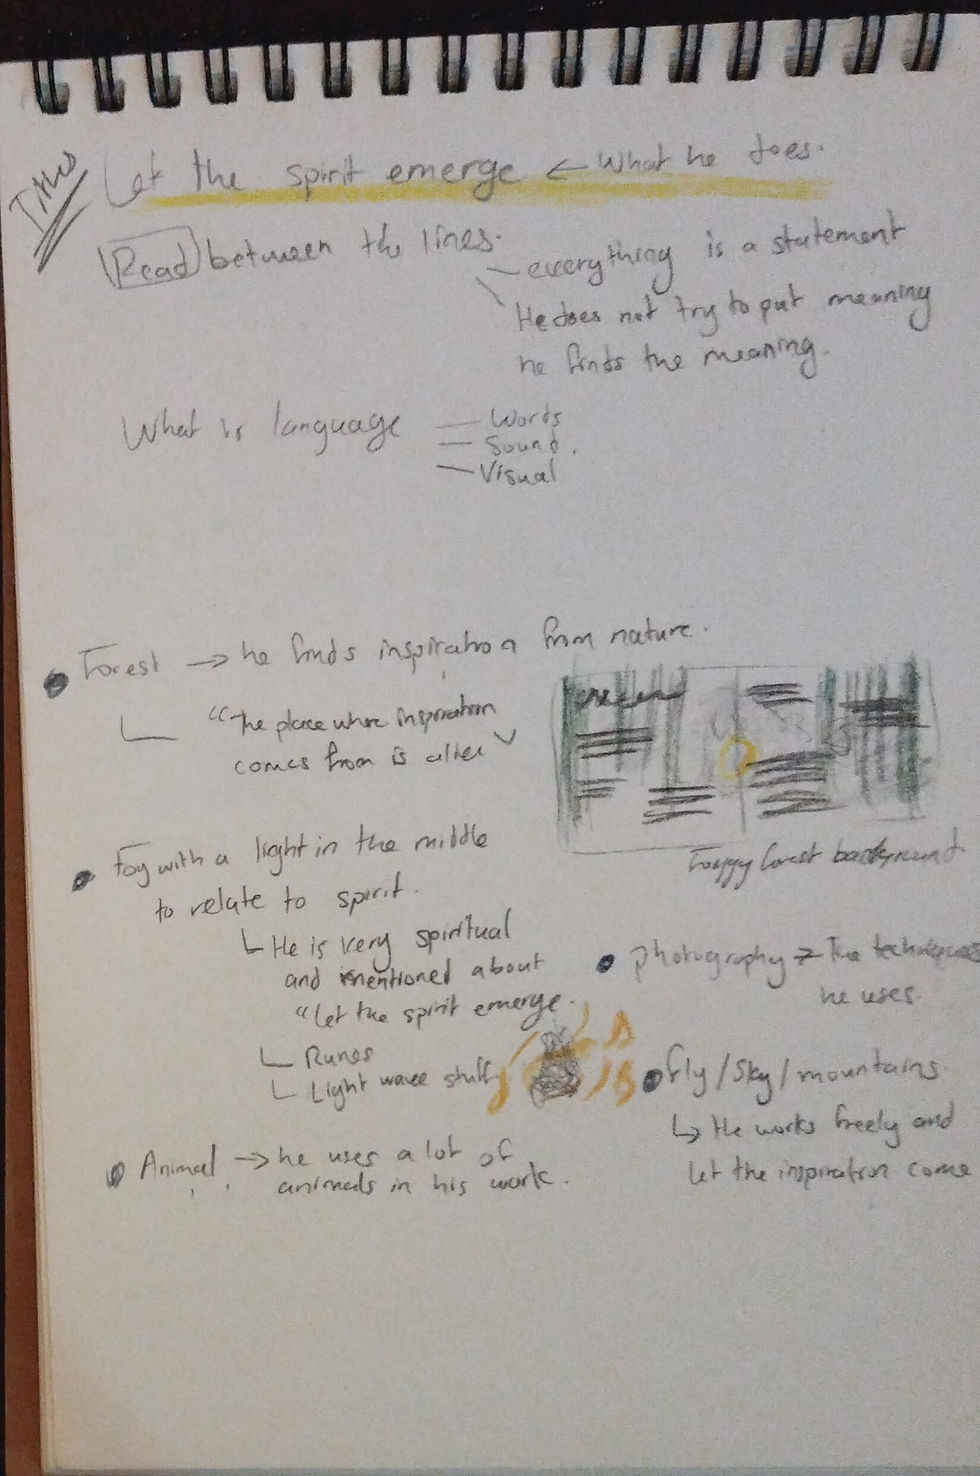 This
Let the spirit emerge ← What he does.
Read between the lines.
everything is a statement
He does not try to put meaning
he finds the meaning.
What is language
Words
Sound.
Visual
Forest → he finds inspiration from nature.
"The place where inspiration
comes from is alive"
Foggy forest background
Fog with a light in the middle
to relate to spirit.
He is very spiritual
and mentioned about
"let the spirit emerge.
Runes
Light wave stuff
Animal → he uses a lot of
animals in his work.
photography → The techniques
he uses.
fly / sky / mountains.
↳ He works freely and
let the inspiration come